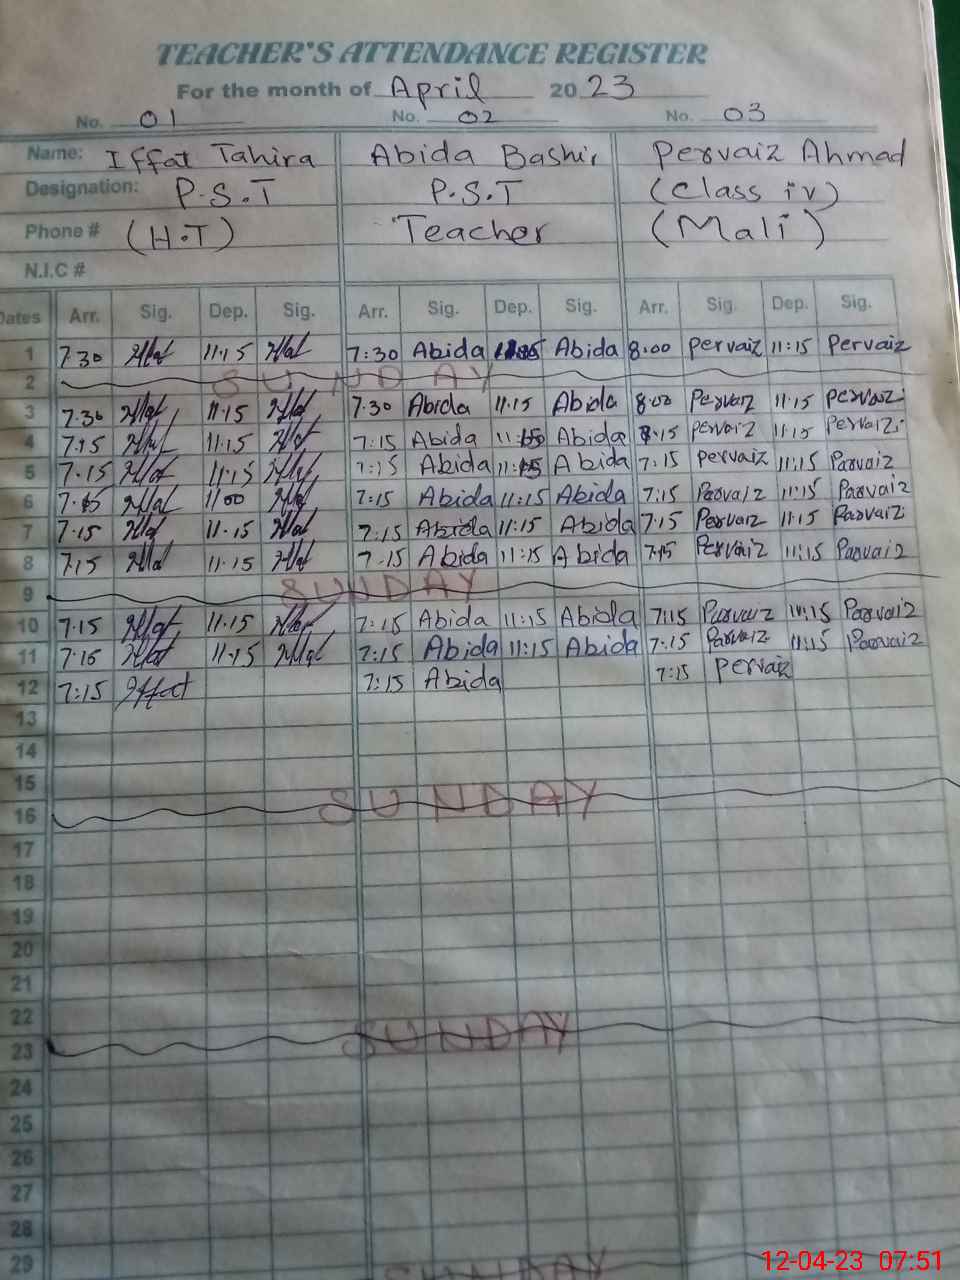 TEACHER'S ATTENDANCE REGISTER
For the month of April 2023
No. 01 No. 02 No. 03
Name: Iffat Tahira Abida Bashir Pervaiz Ahmad
Designation: P.S.T P.S.T (Class iv)
Phone # (H.T) Teacher (Mali)
N.I.C #
Dates Arr. Sig. Dep. Sig. Arr. Sig. Dep. Sig. Arr. Sig. Dep. Sig.
1 7:30 11:15 7:30 Abida Abida 8:00 Pervaiz 11:15 Pervaiz
2 SUNDAY
3 7:30 11:15 7:30 Abida 11:15 Abida 8:00 Pervaiz 11:15 Pervaiz
4 7:15 11:15 7:15 Abida Abida Pervaiz 11:15 Pervaiz
5 7:15 11:15 7:15 Abida 11:15 Abida 7:15 Pervaiz 11:15 Parvaiz
6 1100 7:15 Abida 11:15 Abida 7:15 Parvaiz 11:15 Parvaiz
7 7:15 11:15 7:15 Abida 11:15 Abida 7:15 Pervaiz 11:15 Parvaiz
8 7:15 11:15 7:15 Abida 11:15 Abida 7:15 Pervaiz 11:15 Parvaiz
9 SUNDAY
10 7:15 11:15 7:15 Abida 11:15 Abida 7:15 Parvaiz 11:15 Parvaiz
11 7:15 11:15 7:15 Abida 11:15 Abida 7:15 Parvaiz 11:15 Parvaiz
12 7:15 Iffat 7:15 Abida 7:15 Pervaiz
13
14
15
16 SUNDAY
17
18
19
20
21
22
23 SUNDAY
24
25
26
27
28
29
12-04-23 07:51